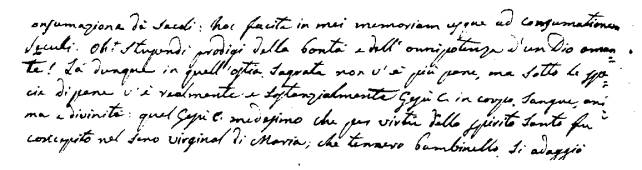 onsumazione de' Secoli: hoc facite in mei memoriam usque ad consumationem
Seculi. Oh! Stupendi prodigi della bontà e dell'onnipotenza d'un Dio aman-
te! Là dunque in quell'ostia sagrata non v'è più pane, ma sotto le spe-
cie di pane v'è realmente e sostanzialmente Gesù C. in corpo, sangue, ani-
ma e divinità: quel Gesù C. medesimo che per virtù dello spirito santo fu
concepito nel seno virginal di Maria; che tennero bambinello si adagiò